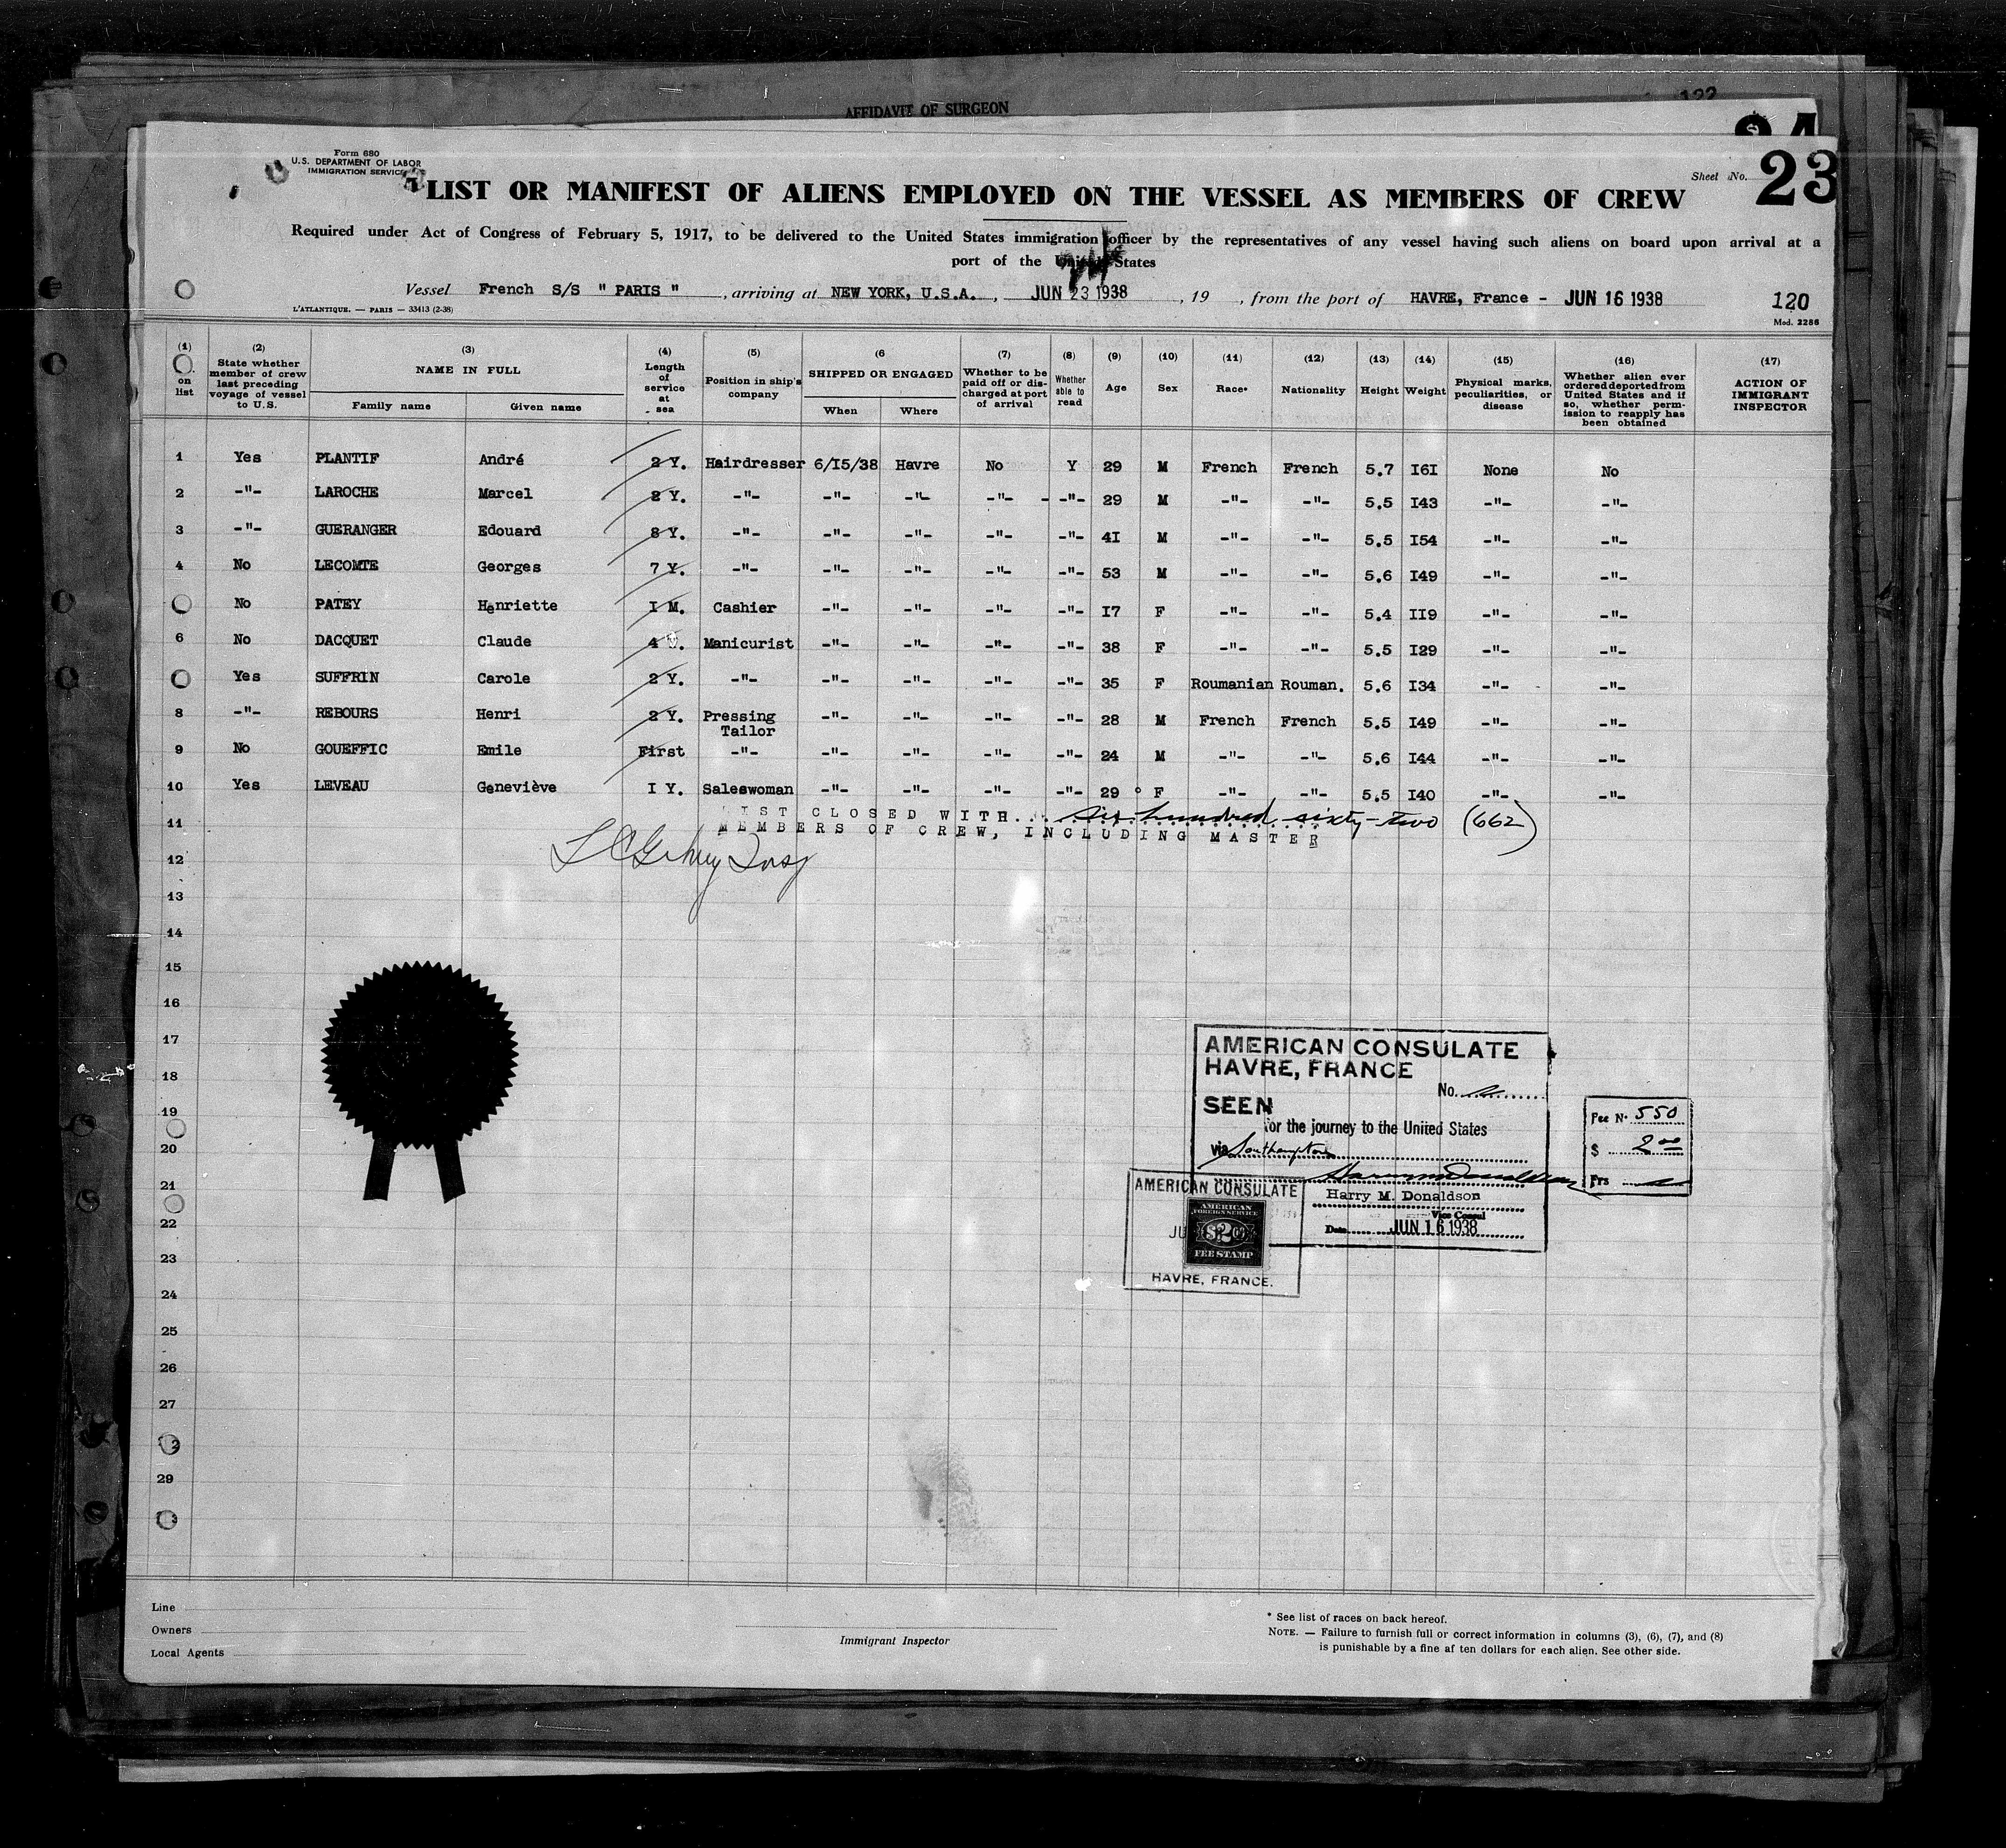 AFFIDAVIT OF SURGEON
122
Form 680
U.S. DEPARTMENT OF LABOR
IMMIGRATION SERVICE
Sheet No. 23
LIST OR MANIFEST OF ALIENS EMPLOYED ON THE VESSEL AS MEMBERS OF CREW
Required under Act of Congress of February 5, 1917, to be delivered to the United States immigration officer by the representatives of any vessel having such aliens on board upon arrival at a
port of the United States
Vessel French S/S " PARIS " , arriving at NEW YORK, U.S.A. , JUN 23 1938 , 19 , from the port of HAVRE, France - JUN 16 1938
120
L'ATLANTIQUE. — PARIS — 33413 (2-38)
Mod. 2286
(1) on list (2) State whether member of crew last preceding voyage of vessel to U.S. (3) NAME IN FULL Family name Given name (4) Length of service at sea (5) Position in ship's company (6 SHIPPED OR ENGAGED When Where (7) Whether to be paid off or discharged at port of arrival (8) Whether able to read (9) Age (10) Sex (11) Race* (12) Nationality (13) Height (14) Weight (15) Physical marks, peculiarities, or disease (16) Whether alien ever ordered deported from United States and if so, whether permission to reapply has been obtained (17) ACTION OF IMMIGRANT INSPECTOR
1 Yes PLANTIF André 2 Y. Hairdresser 6/I5/38 Havre No Y 29 M French French 5.7 I6I None No
2 -"- LAROCHE Marcel 2 Y. -"- -"- -"- -"- -"- 29 M -"- -"- 5.5 I43 -"- -"-
3 -"- GUERANGER Edouard 8 Y. -"- -"- -"- -"- -"- 4I M -"- -"- 5.5 I54 -"- -"-
4 No LECOMTE Georges 7 Y. -"- -"- -"- -"- -"- 53 M -"- -"- 5.6 I49 -"- -"-
No PATEY Henriette I M. Cashier -"- -"- -"- -"- I7 F -"- -"- 5.4 II9 -"- -"-
6 No DACQUET Claude 4 Manicurist -"- -"- -"- -"- 38 F -"- -"- 5.5 I29 -"- -"-
Yes SUFFRIN Carole 2 Y. -"- -"- -"- -"- -"- 35 F Roumanian Rouman. 5.6 I34 -"- -"-
8 -"- REBOURS Henri 2 Y. Pressing Tailor -"- -"- -"- -"- 28 M French French 5.5 I49 -"- -"-
9 No GOUEFFIC Emile First -"- -"- -"- -"- -"- 24 M -"- -"- 5.6 I44 -"- -"-
10 Yes LEVEAU Geneviève I Y. Saleswoman -"- -"- -"- -"- 29 F -"- -"- 5.5 I40 -"- -"-
IST CLOSED WITH six hundred sixty-two (662)
11 MEMBERS OF CREW, INCLUDING MASTER
12
13
14
15
16
17
18
19
20
21
22
23
24
25
26
27
29
AMERICAN CONSULATE
HAVRE, FRANCE
No.
SEEN
for the journey to the United States
via Southampton
Harry M. Donaldson
Vice Consul
Date JUN 16 1938
Fee No. 550
$ 2 00
Frs
AMERICAN CONSULATE
JU
AMERICAN
FOREIGN SERVICE
$2.00
FEE STAMP
HAVRE, FRANCE.
Line
Owners
Local Agents
Immigrant Inspector
* See list of races on back hereof.
NOTE. — Failure to furnish full or correct information in columns (3), (6), (7), and (8)
is punishable by a fine af ten dollars for each alien. See other side.